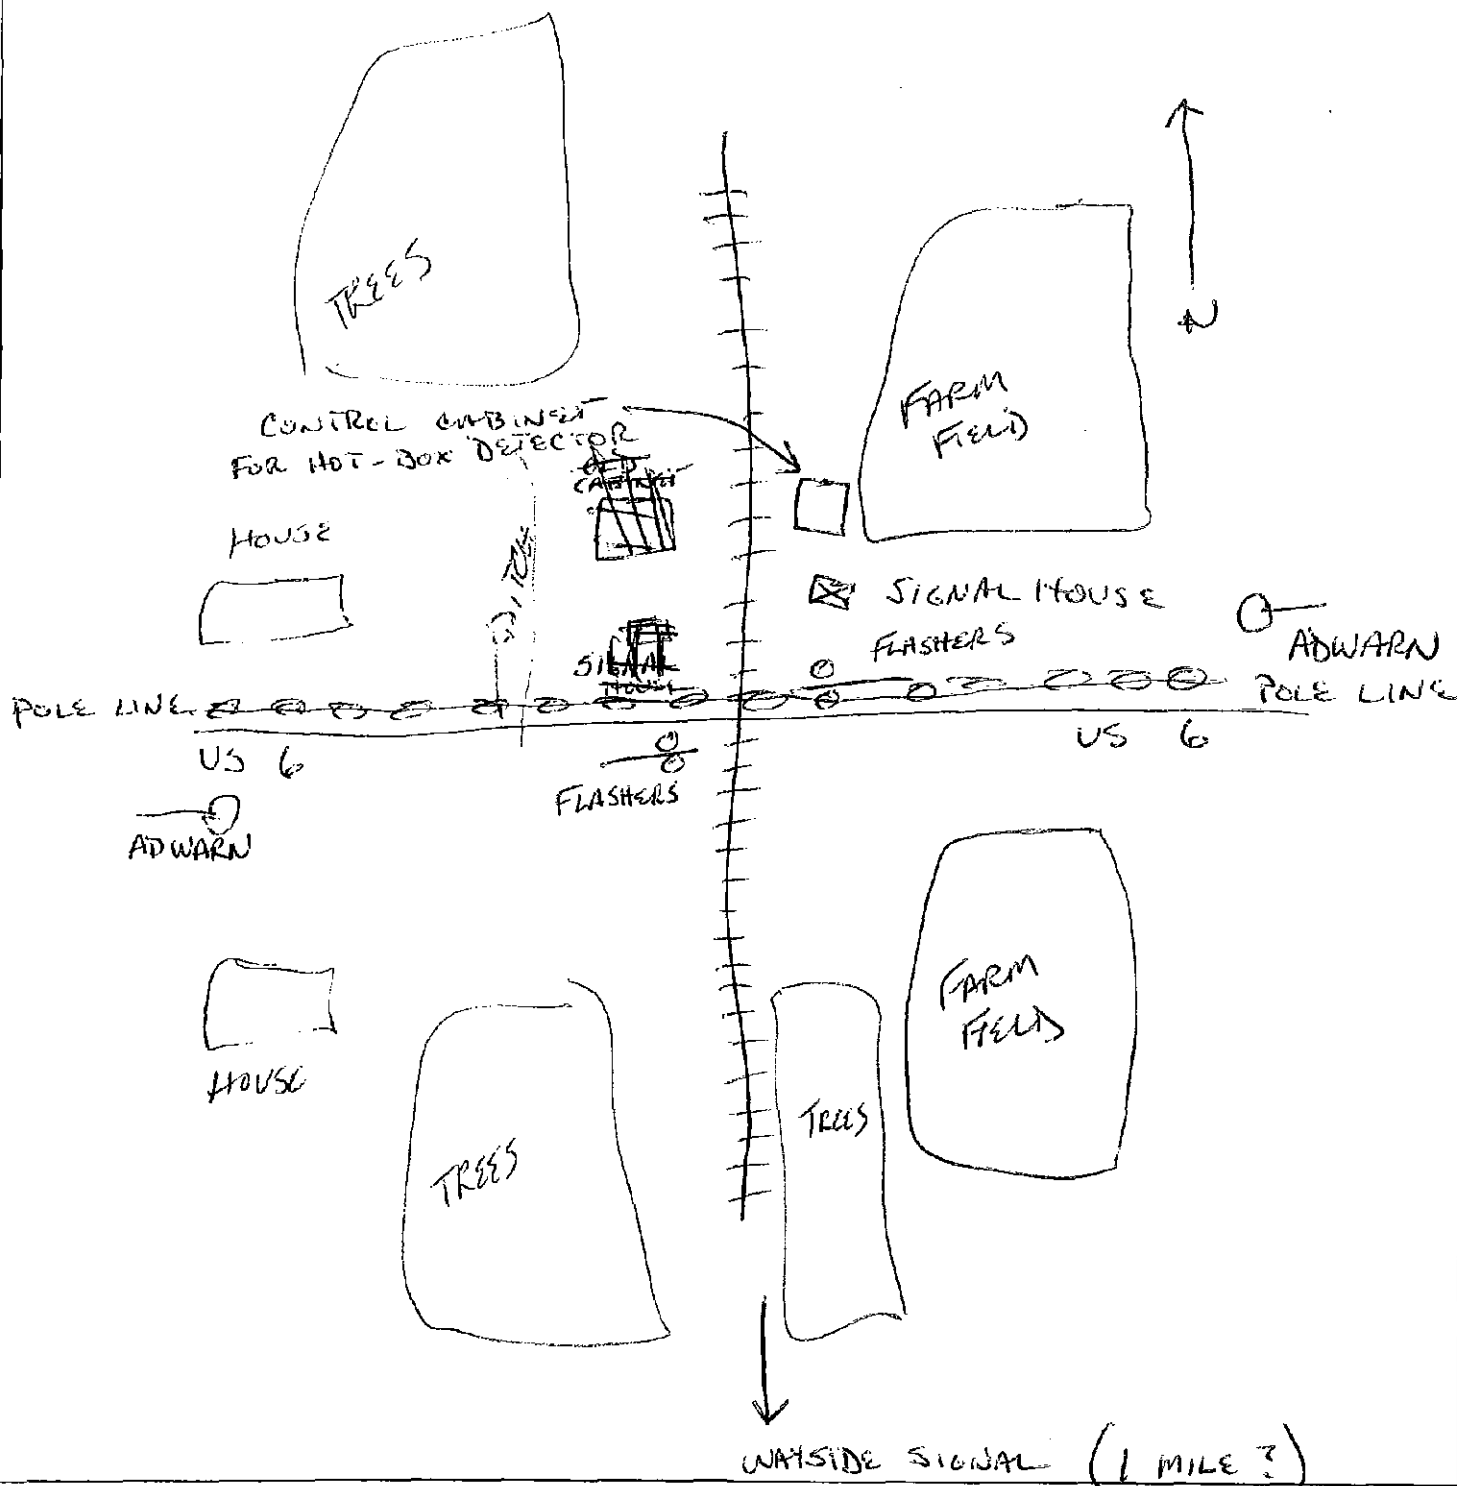 TREES
N
FARM
FIELD
CONTROL CABINET
FOR HOT-BOX DETECTOR
CABINET
HOUSE
DITCH
SIGNAL HOUSE
FLASHERS
ADWARN
SIGNAL
HOUSE
POLE LINE
POLE LINE
US 6
US 6
FLASHERS
ADWARN
FARM
FIELD
HOUSE
TREES
TREES
WAYSIDE SIGNAL (1 MILE ?)